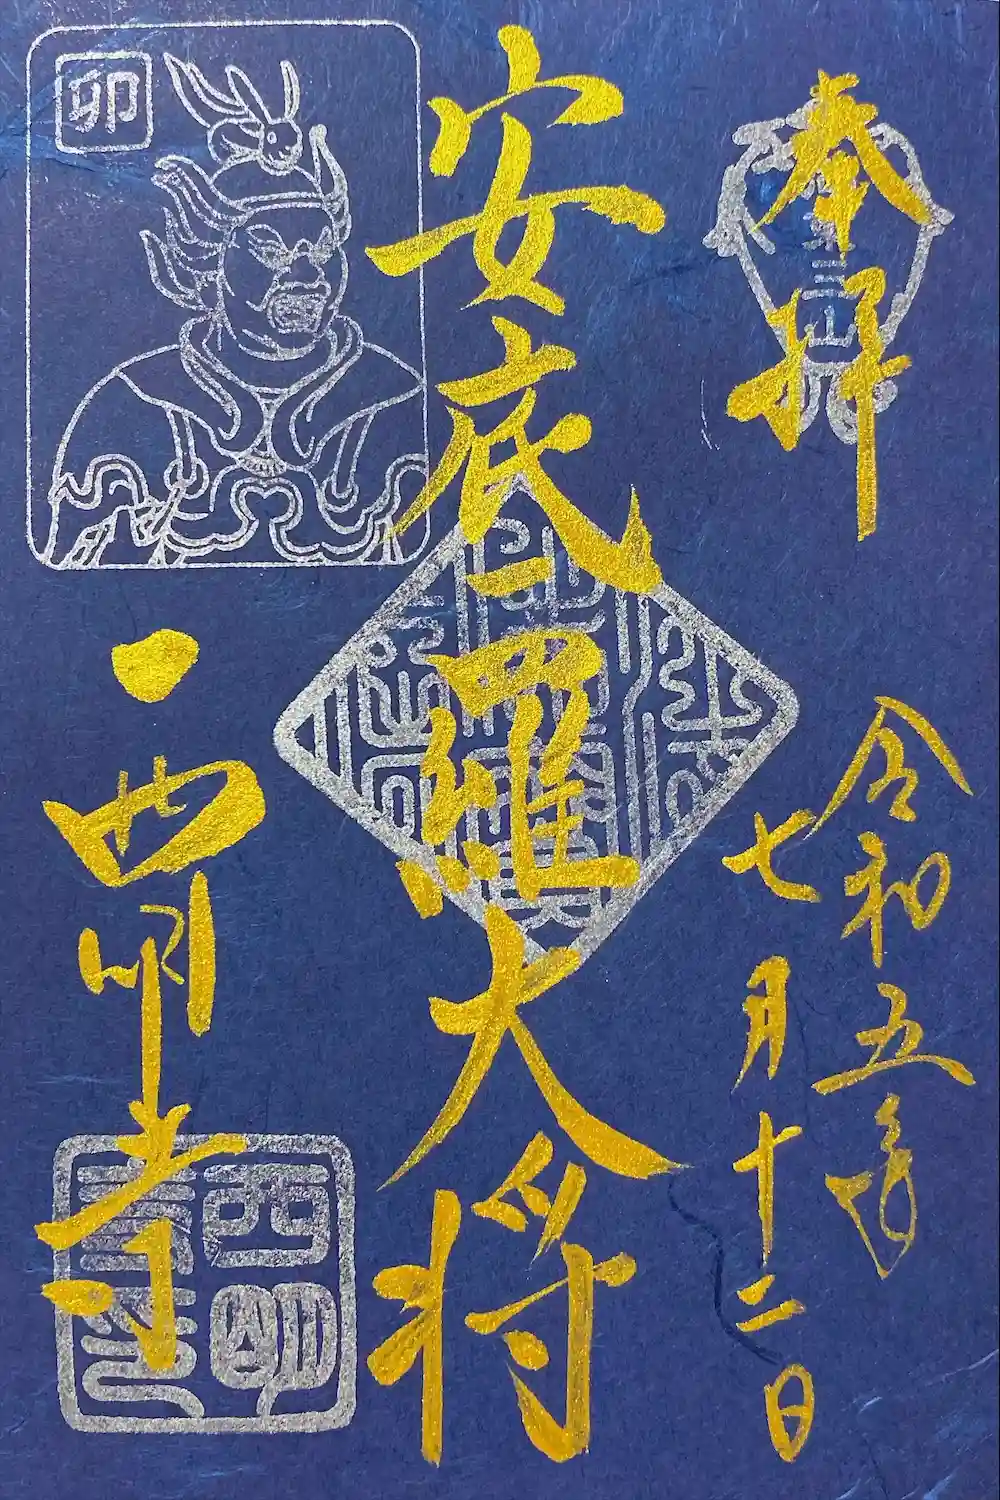 奉拝
令和五年
七月十二日
安底羅大将
西明寺
卯
西明